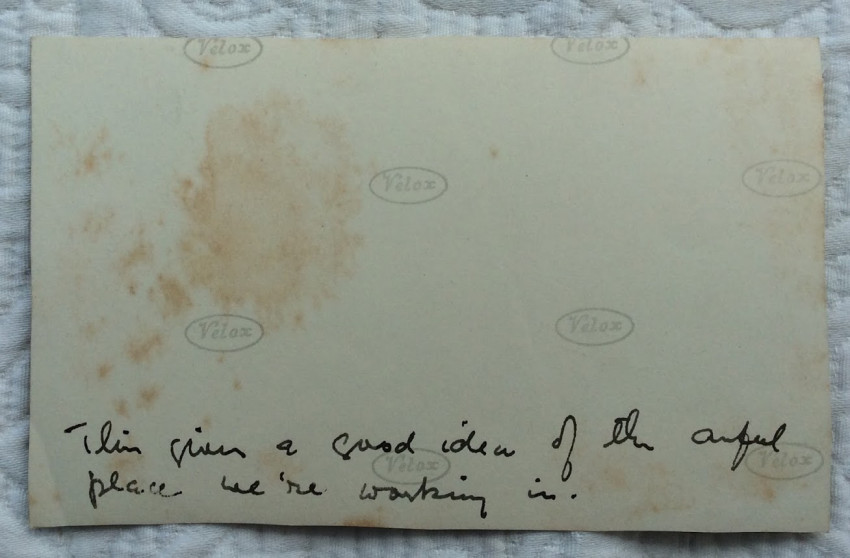 Velox Velox
Velox Velox
Velox Velox
This gives a good idea of the awful
Velox Velox
place we're working in.